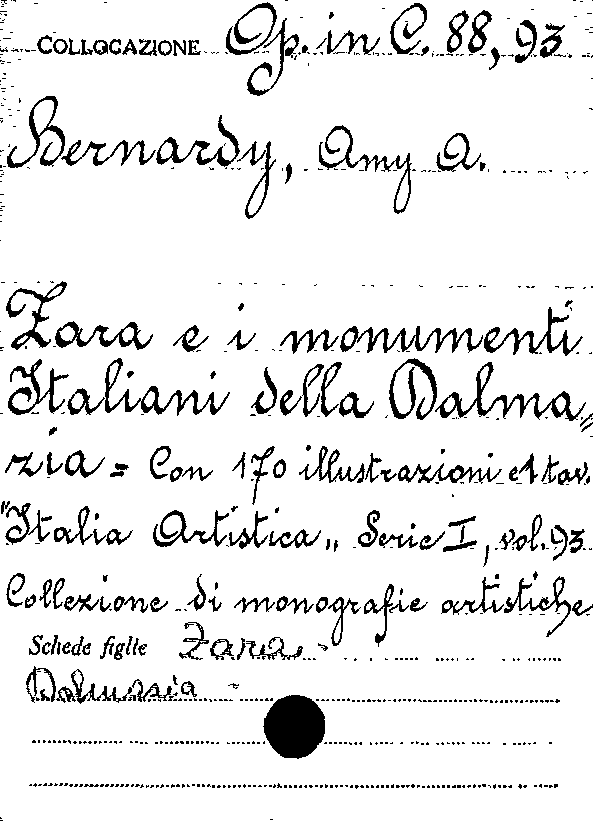 COLLOCAZIONE Op. in C. 88, 93
Bernardy, Amy A.
Zara e i monumenti
Italiani della Dalma„
zia = Con 170 illustrazioni e 1 tav.
"Italia Artistica„ Serie I, vol. 93
Collezione di monografie artistiche
Schede figlie Zara -
Dalmazia -